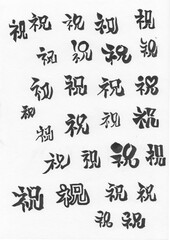 祝祝祝祝祝
祝祝祝祝
祝祝祝祝
祝祝祝祝祝
祝祝祝祝
祝祝祝祝
祝祝